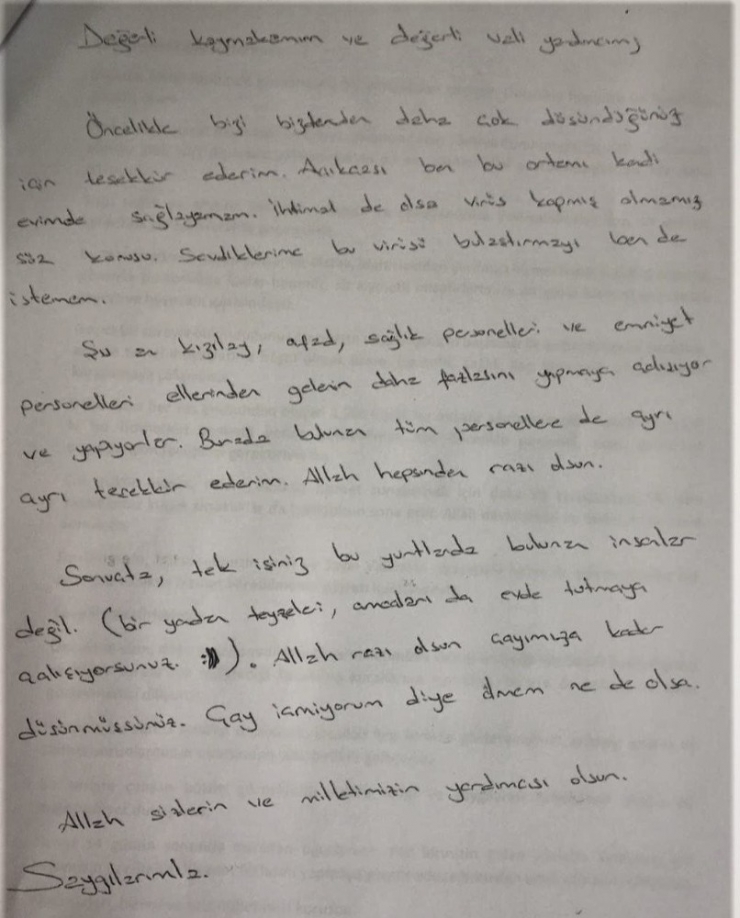 Değerli kaymakamım ve değerli vali yardımcımız
Öncelikle bizi bizlerden daha çok düşündüğünüz
için teşekkür ederim. Açıkcası ben bu ortamı kendi
evimde sağlayamam. İhtimal de olsa virüs kapmış olmamız
söz konusu. Sevdiklerime bu virüsü bulaştırmayı ben de
istemem.
Şu an kızılay, afad, sağlık personelleri ve emniyet
personelleri ellerinden gelenin daha fazlasını yapmaya çalışıyor
ve yapıyorlar. Burada bulunan tüm personellere de ayrı
ayrı teşekkür ederim. Allah hepsinden razı olsun.
Sonuçta, tek işiniz bu yurtlarda bulunan insanlar
değil. (bir yandan teyzeleri, amcaları da evde tutmaya
çalışıyorsunuz. :)) ). Allah razı olsun çayımıza kadar
düşünmüşsünüz. Çay içmiyorum diye ölmem ne de olsa.
Allah sizlerin ve milletimizin yardımcısı olsun.
Saygılarımla.